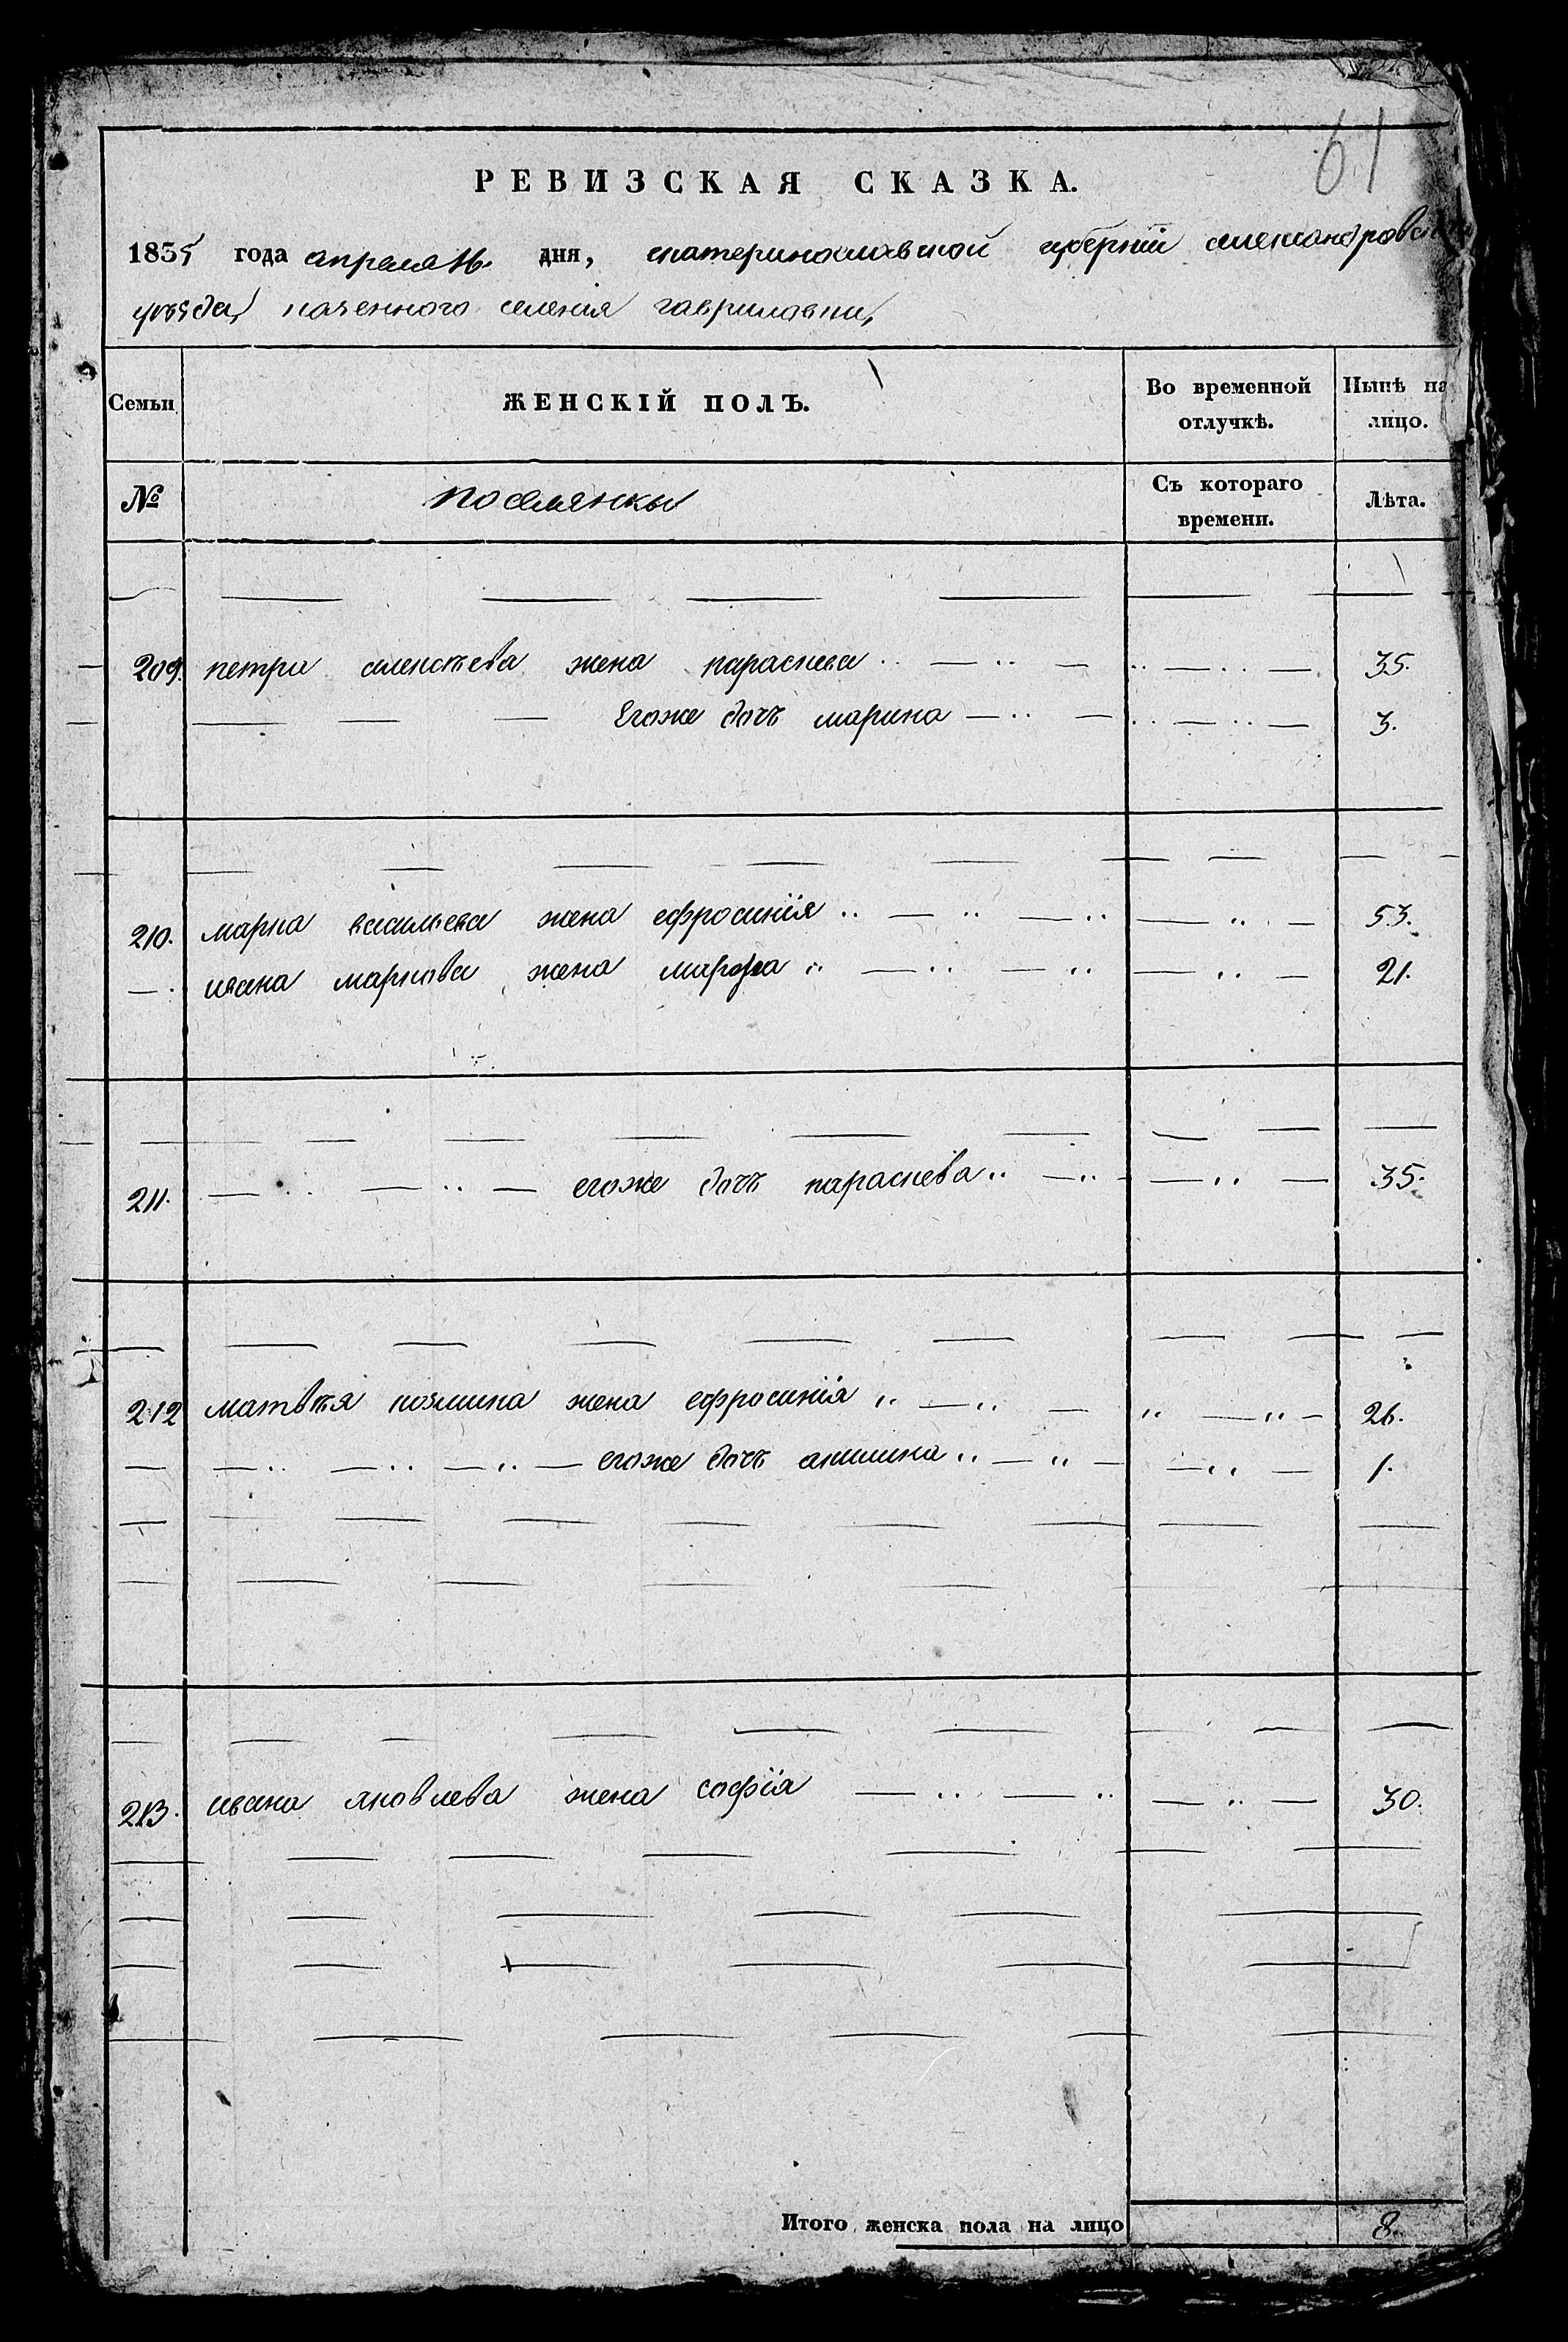 61
РЕВИЗСКАЯ СКАЗКА.
1835 года апреля 16. дня, екатеринославской губернїи александровскаго
уѣзда, казенного селенія гавриловки,
Семьи
ЖЕНСКІЙ ПОЛЪ.
Во временной отлучкѣ.
Нынѣ на лицо.
№
поселянки
Съ котораго времени.
Лѣта.
209. петра алексѣева жена параскева 35.
Егоже дочь марина 3.
210. марка васильева жена ефросинїя 53.
ивана маркова жена марфа 21.
211. егоже дочь параскева 35.
212 матвѣя козмина жена ефросинїя 26.
егоже дочь акилина 1.
213. ивана яковлева жена софїя 30.
Итого женска пола на лицо 8.